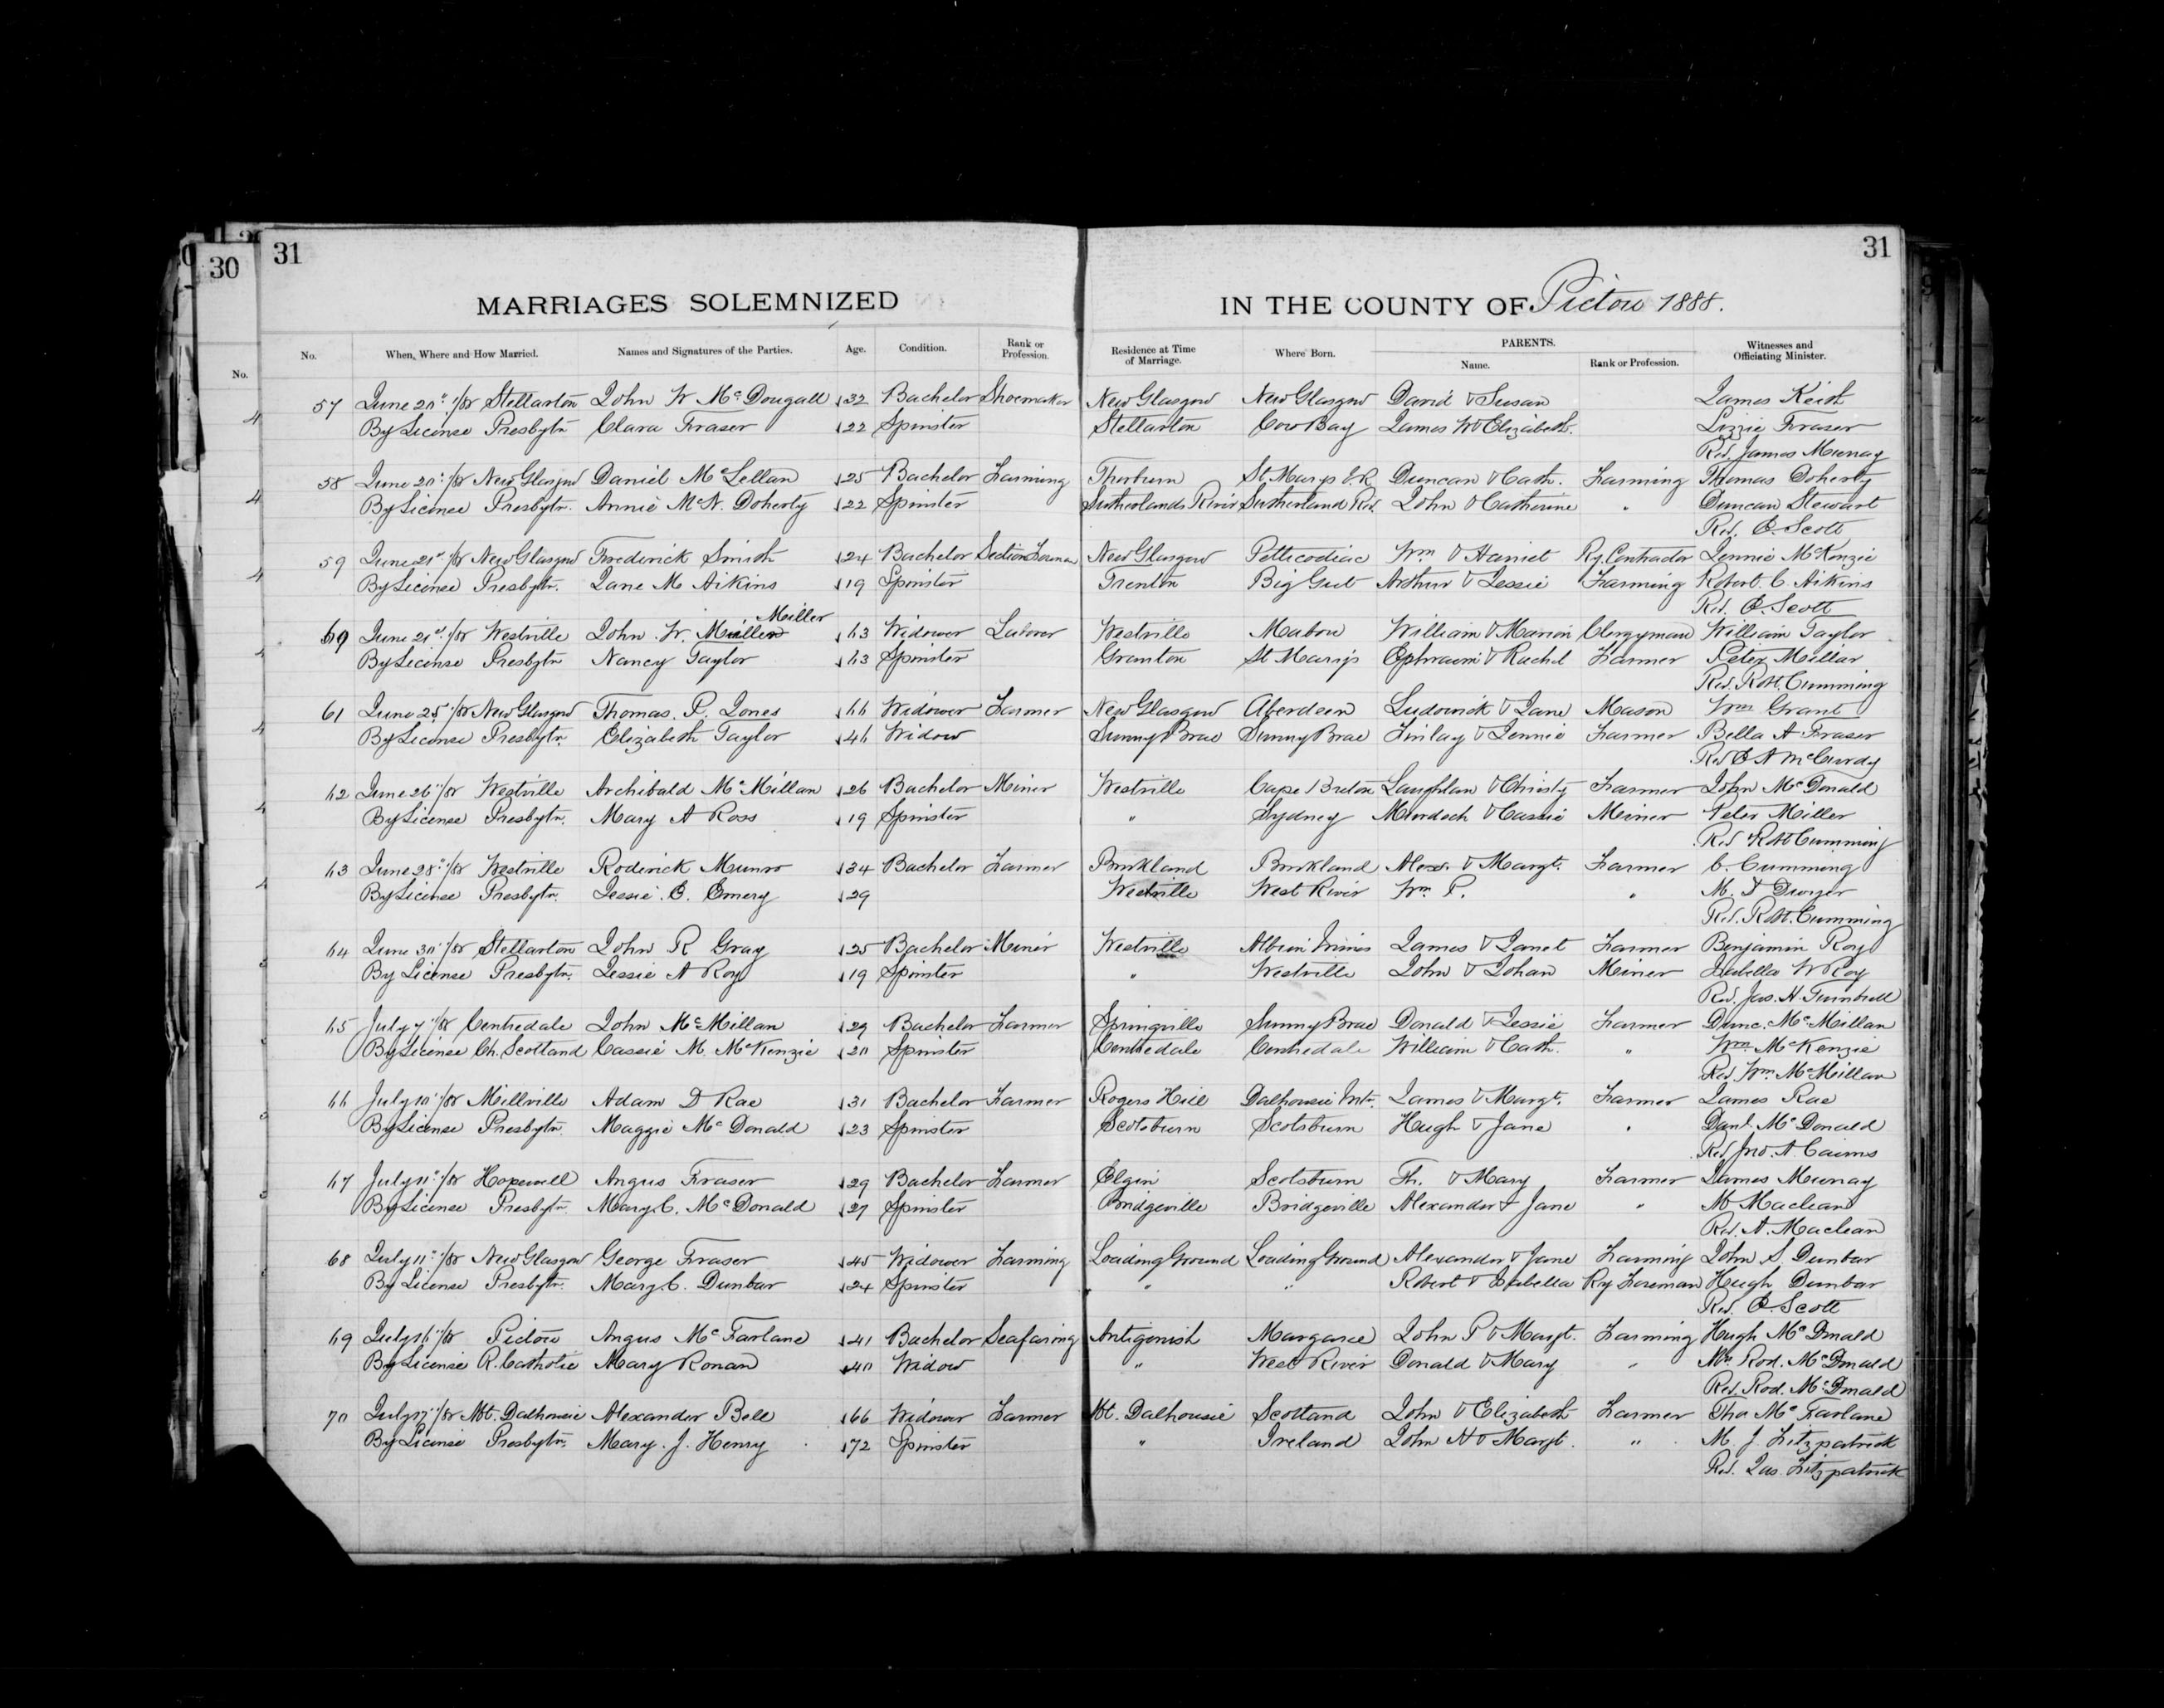 30
31
31
MARRIAGES SOLEMNIZED IN THE COUNTY OF Pictou 1888.
No. No. When, Where and How Married. Names and Signatures of the Parties. Age. Condition. Rank or Profession. Residence at Time of Marriage. Where Born. PARENTS. Name. Rank or Profession. Witnesses and Officiating Minister.
57 June 20 /88 Stellarton John W McDougall 32 Bachelor Shoemaker New Glasgow New Glasgow David & Susan James Keith
By License Presbytn Clara Fraser 22 Spinster Stellarton Cow Bay James W & Elizabeth. Lizzie Fraser
Rev. James Murray
58 June 20 /88 New Glasgow Daniel McLellan 25 Bachelor Farming Thorburn St Marys Duncan & Cath. Farming Thomas Doherty
By License Presbytn. Annie McN. Doherty 22 Spinster Sutherlands River Sutherland Riv. John & Catherine " Duncan Stewart
Rev. E. Scott
59 June 21st /88 New Glasgow Frederick Smith 24 Bachelor Section Foreman New Glasgow Petticodiac Wm & Harriet Ry Contractor Jennie McKenzie
By License Presbytn. Jane M Aikins 19 Spinster Trenton Big Gut Arthur & Jessie Farming Robert. C. Aikins
Rev. E. Scott
Miller
60 June 21st /88 Westville John. W. 63 Widower Laborer Westville Mabou William & Marion Clergyman William Taylor
By License Presbytn Nancy Taylor 63 Spinster Granton St Mary's Ephraim & Rachel Farmer Peter Millar
Rev. Robt. Cumming
61 June 25 /88 New Glasgow Thomas. P. Jones 66 Widower Farmer New Glasgow Aberdeen Ludowick & Jane Mason Wm Grant
By License Presbytn. Elizabeth Taylor 46 Widow Sunny Brae Sunny Brae Finlay & Jennie Farmer Bella A Fraser
Rev E A McCurdy
62 June 26 /88 Westville Archibald McMillan 26 Bachelor Miner Westville Cape Breton Laughlan & Christy Farmer John McDonald
By License Presbytn. Mary A Ross 19 Spinster " Sydney Murdoch & Cassie Miner Peter Miller
Rev Robt Cumming
63 June 28 /88 Westville Roderick Munro 34 Bachelor Farmer Alexr. & Margt. Farmer C. Cumming
By License Presbytn. Jessie. E. Emery 29 Westville West River Wm P. " M.
Rev. Robt. Cumming
64 June 30 /88 Stellarton John R Gray 25 Bachelor Miner Westville Albion Mines James & Janet Farmer Benjamin Roy
By License Presbytn. Jessie A Roy 19 Spinster " Westville John & Johan Miner Isabella W Roy
Rev. Jas. H. Turnbull
65 July 7 /88 Centredale John McMillan 29 Bachelor Farmer Springville Sunny Brae Donald & Jessie Farmer Dunc. McMillan
By License Ch. Scotland Cassie M. McKenzie 20 Spinster Centredale Centredale William & Cath. " Wm McKenzie
Rev. Wm McMillan
66 July 10 /88 Millville Adam D Rae 31 Bachelor Farmer Rogers Hill Dalhousie Mt. James & Margt. Farmer James Rae
By License Presbytn. Maggie McDonald 23 Spinster Scotsburn Scotsburn Hugh & Jane " Danl. McDonald
Rev. Jno. A. Cairns
67 July 11 /88 Hopewell Angus Fraser 29 Bachelor Farmer Elgin Scotsburn Th. & Mary Farmer James Murray
By License Presbytn. Mary. C. McDonald 27 Spinster Bridgeville Bridgeville Alexander & Jane " M Maclean
Rev. A. Maclean
68 July 11 /88 New Glasgow George Fraser 45 Widower Farming Loading Ground Loading Ground Alexander & Jane Farming John S Dunbar
By License Presbytn. Mary. C. Dunbar 24 Spinster " " Robert & Isabella Ry Foreman Hugh Dunbar
Rev. E. Scott
69 July 16 /88 Pictou Angus McFarlane 41 Bachelor Seafaring Antigonish Margaree John P & Margt. Farming Hugh McDonald
By License R. Catholic Mary Ronan 40 Widow " West River Donald & Mary " Mrs Rod. McDonald
Rev. Rod. McDonald
70 July 17 /88 Mt. Dalhousie Alexander Bell 66 Widower Farmer Mt. Dalhousie Scotland John & Elizabeth Farmer Thos McFarlane
By License Presbytn. Mary. J. Henry 72 Spinster " Ireland John H & Margt. " M. J Fitzpatrick
Rev. Jas. Fitzpatrick